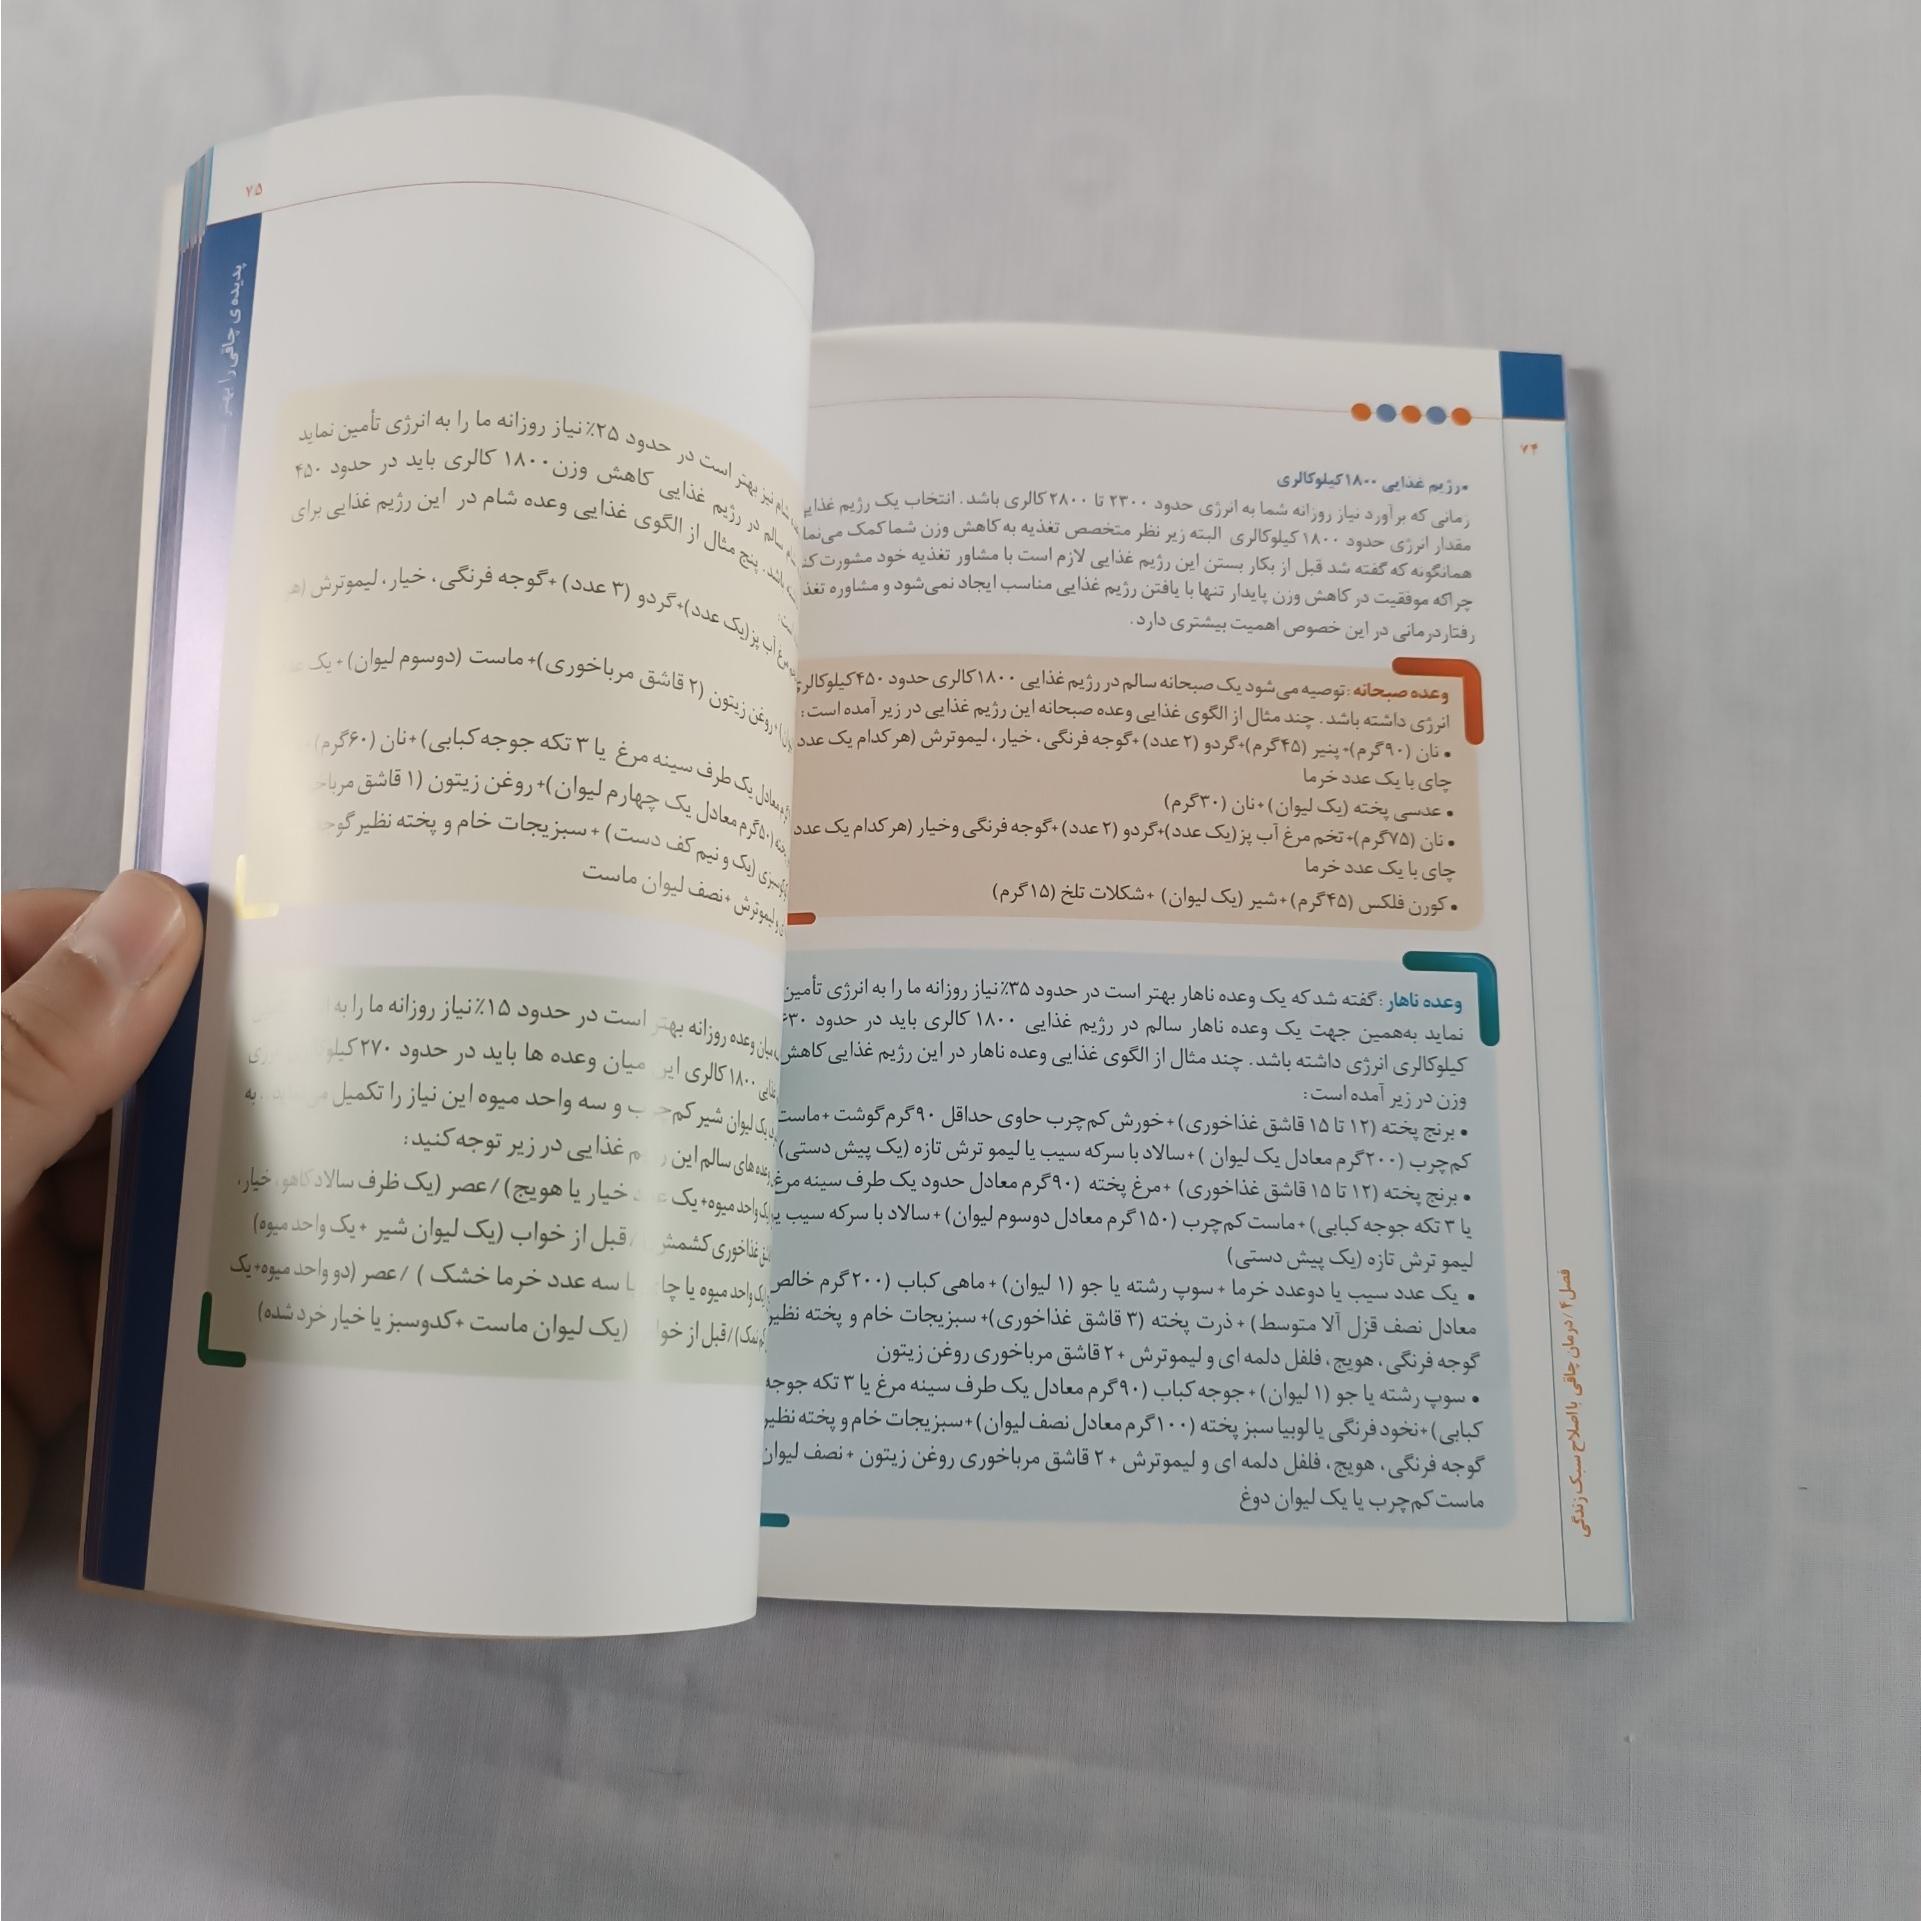 ۷۴
•رژیم غذایی ۱۸۰۰کیلوکالری
زمانی که برآورد نیاز روزانه شما به انرژی حدود ۲۳۰۰ تا ۲۸۰۰ کالری باشد. انتخاب یک رژیم
مقدار انرژی حدود ۱۸۰۰ کیلوکالری البته زیر نظر متخصص تغذیه به کاهش وزن شما کمک
همانگونه که گفته شد قبل از بکار بستن این رژیم غذایی لازم است با مشاور تغذیه خود مشورت
چراکه موفقیت در کاهش وزن پایدار تنها با یافتن رژیم غذایی مناسب ایجاد نمی‌شود و مشاوره
رفتاردرمانی در این خصوص اهمیت بیشتری دارد.
وعده صبحانه : توصیه می‌شود یک صبحانه سالم در رژیم غذایی ۱۸۰۰کالری حدود ۴۵۰کیلوکالری
انرژی داشته باشد. چند مثال از الگوی غذایی وعده صبحانه این رژیم غذایی در زیر آمده است:
• نان (۹۰گرم)+ پنیر (۴۵گرم)+گردو (۲ عدد) +گوجه فرنگی، خیار، لیموترش (هر کدام یک عدد
چای با یک عدد خرما
• عدسی پخته (یک لیوان) +نان (۳۰گرم)
• نان (۷۵گرم)+ تخم مرغ آب پز(یک عدد)+گردو (۲ عدد) +گوجه فرنگی وخیار (هر کدام یک عدد
چای با یک عدد خرما
• کورن فلکس (۴۵گرم) +شیر (یک لیوان) +شکلات تلخ (۱۵گرم)
وعده ناهار : گفته شد که یک وعده ناهار بهتر است در حدود ۳۵٪نیاز روزانه ما را به انرژی تأمین
نماید به‌همین جهت یک وعده ناهار سالم در رژیم غذایی ۱۸۰۰ کالری باید در حدود ۶۳۰
کیلوکالری انرژی داشته باشد. چند مثال از الگوی غذایی وعده ناهار در این رژیم غذایی کاهش
وزن در زیر آمده است:
• برنج پخته (۱۲ تا ۱۵ قاشق غذاخوری) +خورش کم‌چرب حاوی حداقل ۹۰گرم گوشت +ماست
کم‌چرب (۲۰۰گرم معادل یک لیوان ) +سالاد با سرکه سیب یا لیمو ترش تازه (یک پیش دستی)
• برنج پخته (۱۲ تا ۱۵ قاشق غذاخوری) +مرغ پخته (۹۰گرم معادل حدود یک طرف سینه مرغ
یا ۳ تکه جوجه کبابی) +ماست کم‌چرب (۱۵۰گرم معادل دوسوم لیوان) +سالاد با سرکه سیب
لیمو ترش تازه (یک پیش دستی)
• یک عدد سیب یا دوعدد خرما +سوپ رشته یا جو (۱ لیوان) +ماهی کباب (۲۰۰گرم خالص
معادل نصف قزل آلا متوسط) +ذرت پخته (۳ قاشق غذاخوری)+ سبزیجات خام و پخته نظیر
گوجه فرنگی، هویج، فلفل دلمه ای و لیموترش +۲ قاشق مرباخوری روغن زیتون
• سوپ رشته یا جو (۱ لیوان) +جوجه کباب (۹۰گرم معادل یک طرف سینه مرغ یا ۳ تکه جوجه
کبابی) +نخود فرنگی یا لوبیا سبز پخته (۱۰۰گرم معادل نصف لیوان) +سبزیجات خام و پخته نظیر
گوجه فرنگی، هویج، فلفل دلمه ای و لیموترش +۲ قاشق مرباخوری روغن زیتون +نصف لیوان
ماست کم‌چرب یا یک لیوان دوغ
فصل ۴ / درمان چاقی با اصلاح سبک زندگی
۷۵
پدیده ی چاقی را بهتر
شام نیز بهتر است در حدود ۲۵٪نیاز روزانه ما را به انرژی تأمین نماید
سالم در رژیم غذایی کاهش وزن۱۸۰۰ کالری باید در حدود ۴۵۰
باشد. پنج مثال از الگوی غذایی وعده شام در این رژیم غذایی برای
مرغ آب پز(یک عدد)+گردو (۳ عدد) +گوجه فرنگی، خیار، لیموترش
+روغن زیتون (۲ قاشق مرباخوری)+ ماست (دوسوم لیوان) +یک
معادل یک طرف سینه مرغ یا ۳ تکه جوجه کبابی) +نان (۶۰گرم)
(۵۰گرم معادل یک چهارم لیوان)+ روغن زیتون (۱ قاشق
(یک و نیم کف دست) + سبزیجات خام و پخته نظیر
و لیموترش +نصف لیوان ماست
میان وعده روزانه بهتر است در حدود ۱۵٪نیاز روزانه ما را به
۱۸۰۰کالری این میان وعده ها باید در حدود ۲۷۰
یک لیوان شیر کم‌چرب و سه واحد میوه این نیاز را تکمیل به
وعده های سالم این رژیم غذایی در زیر توجه کنید:
یک واحد میوه+ یک عدد خیار یا هویج) /عصر (یک ظرف سالاد کاهو، خیار،
غذاخوری کشمش /قبل از خواب (یک لیوان شیر +یک واحد میوه)
یک واحد میوه یا سه عدد خرما خشک ) /عصر (دو واحد میوه+یک
نمک) /قبل از (یک لیوان ماست +کدوسبز یا خیار خرد شده)